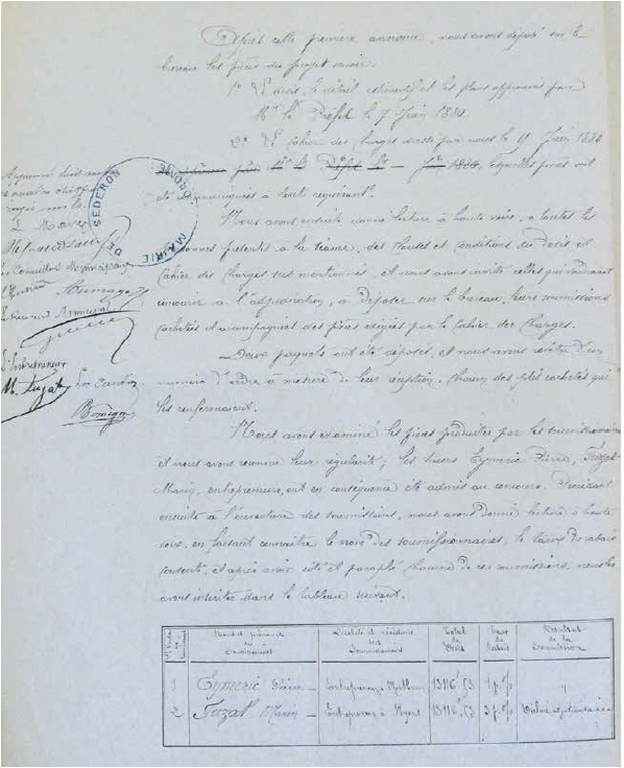 Après cette première annonce, nous avons déposé sur le
bureau les pièces du projet savoir:
1° Le devis, le détail estimatif et les plans approuvés par
Mr le Préfet le 7 Juin 1880.
2° Le Cahier des charges dressé par nous le 9 Juin 1880
par Mr le Préfet le — Juin 1880, lesquelles pièces ont
été communiquées à tout requérant.
Nous avons ensuite donné lecture à haute voix, à toutes les
personnes présentes à la séance, des clauses et conditions du Devis et
Cahier des Charges sus mentionnés, et nous avons invité celles qui voudraient
concourir à l'adjudication, à déposer sur le bureau, leurs soumissions
cachetées et accompagnées des pièces exigées par le Cahier des Charges.
Deux paquets ont été déposés, et nous avons revêtu d'un
numéro d'ordre à mesure de leur réception, chacun des plis cachetés qui
les renfermaient.
Nous avons examiné les pièces produites par les soumissionnaires
et nous avons reconnu leur régularité; les sieurs Eymeric Pierre, Tuzat
Marin, entrepreneurs, ont en conséquence été admis au concours. Procédant
ensuite à l'ouverture des soumissions, nous avons donné lecture à haute
voix, en faisant connaître le nom des soumissionnaires, le taux du rabais
consenti, et après avoir coté et paraphé chacune de ces soumissions, nous les
avons inscrites dans le tableau suivant.
MAIRIE DE SEDERON (DROME)
Le Maire
L'Entrepreneur
M. Tuzat
Noms et prénoms des Soumissionnaires
Qualité et résidence des Soumissionnaires
Total du Devis
Taux du Rabais
Résultat de la Soumission
1 Eymeric Pierre — Entrepreneur 13116f,53 1 p. %
2 Tuzat Marin — Entrepreneur à 13116f,53 3 p. %